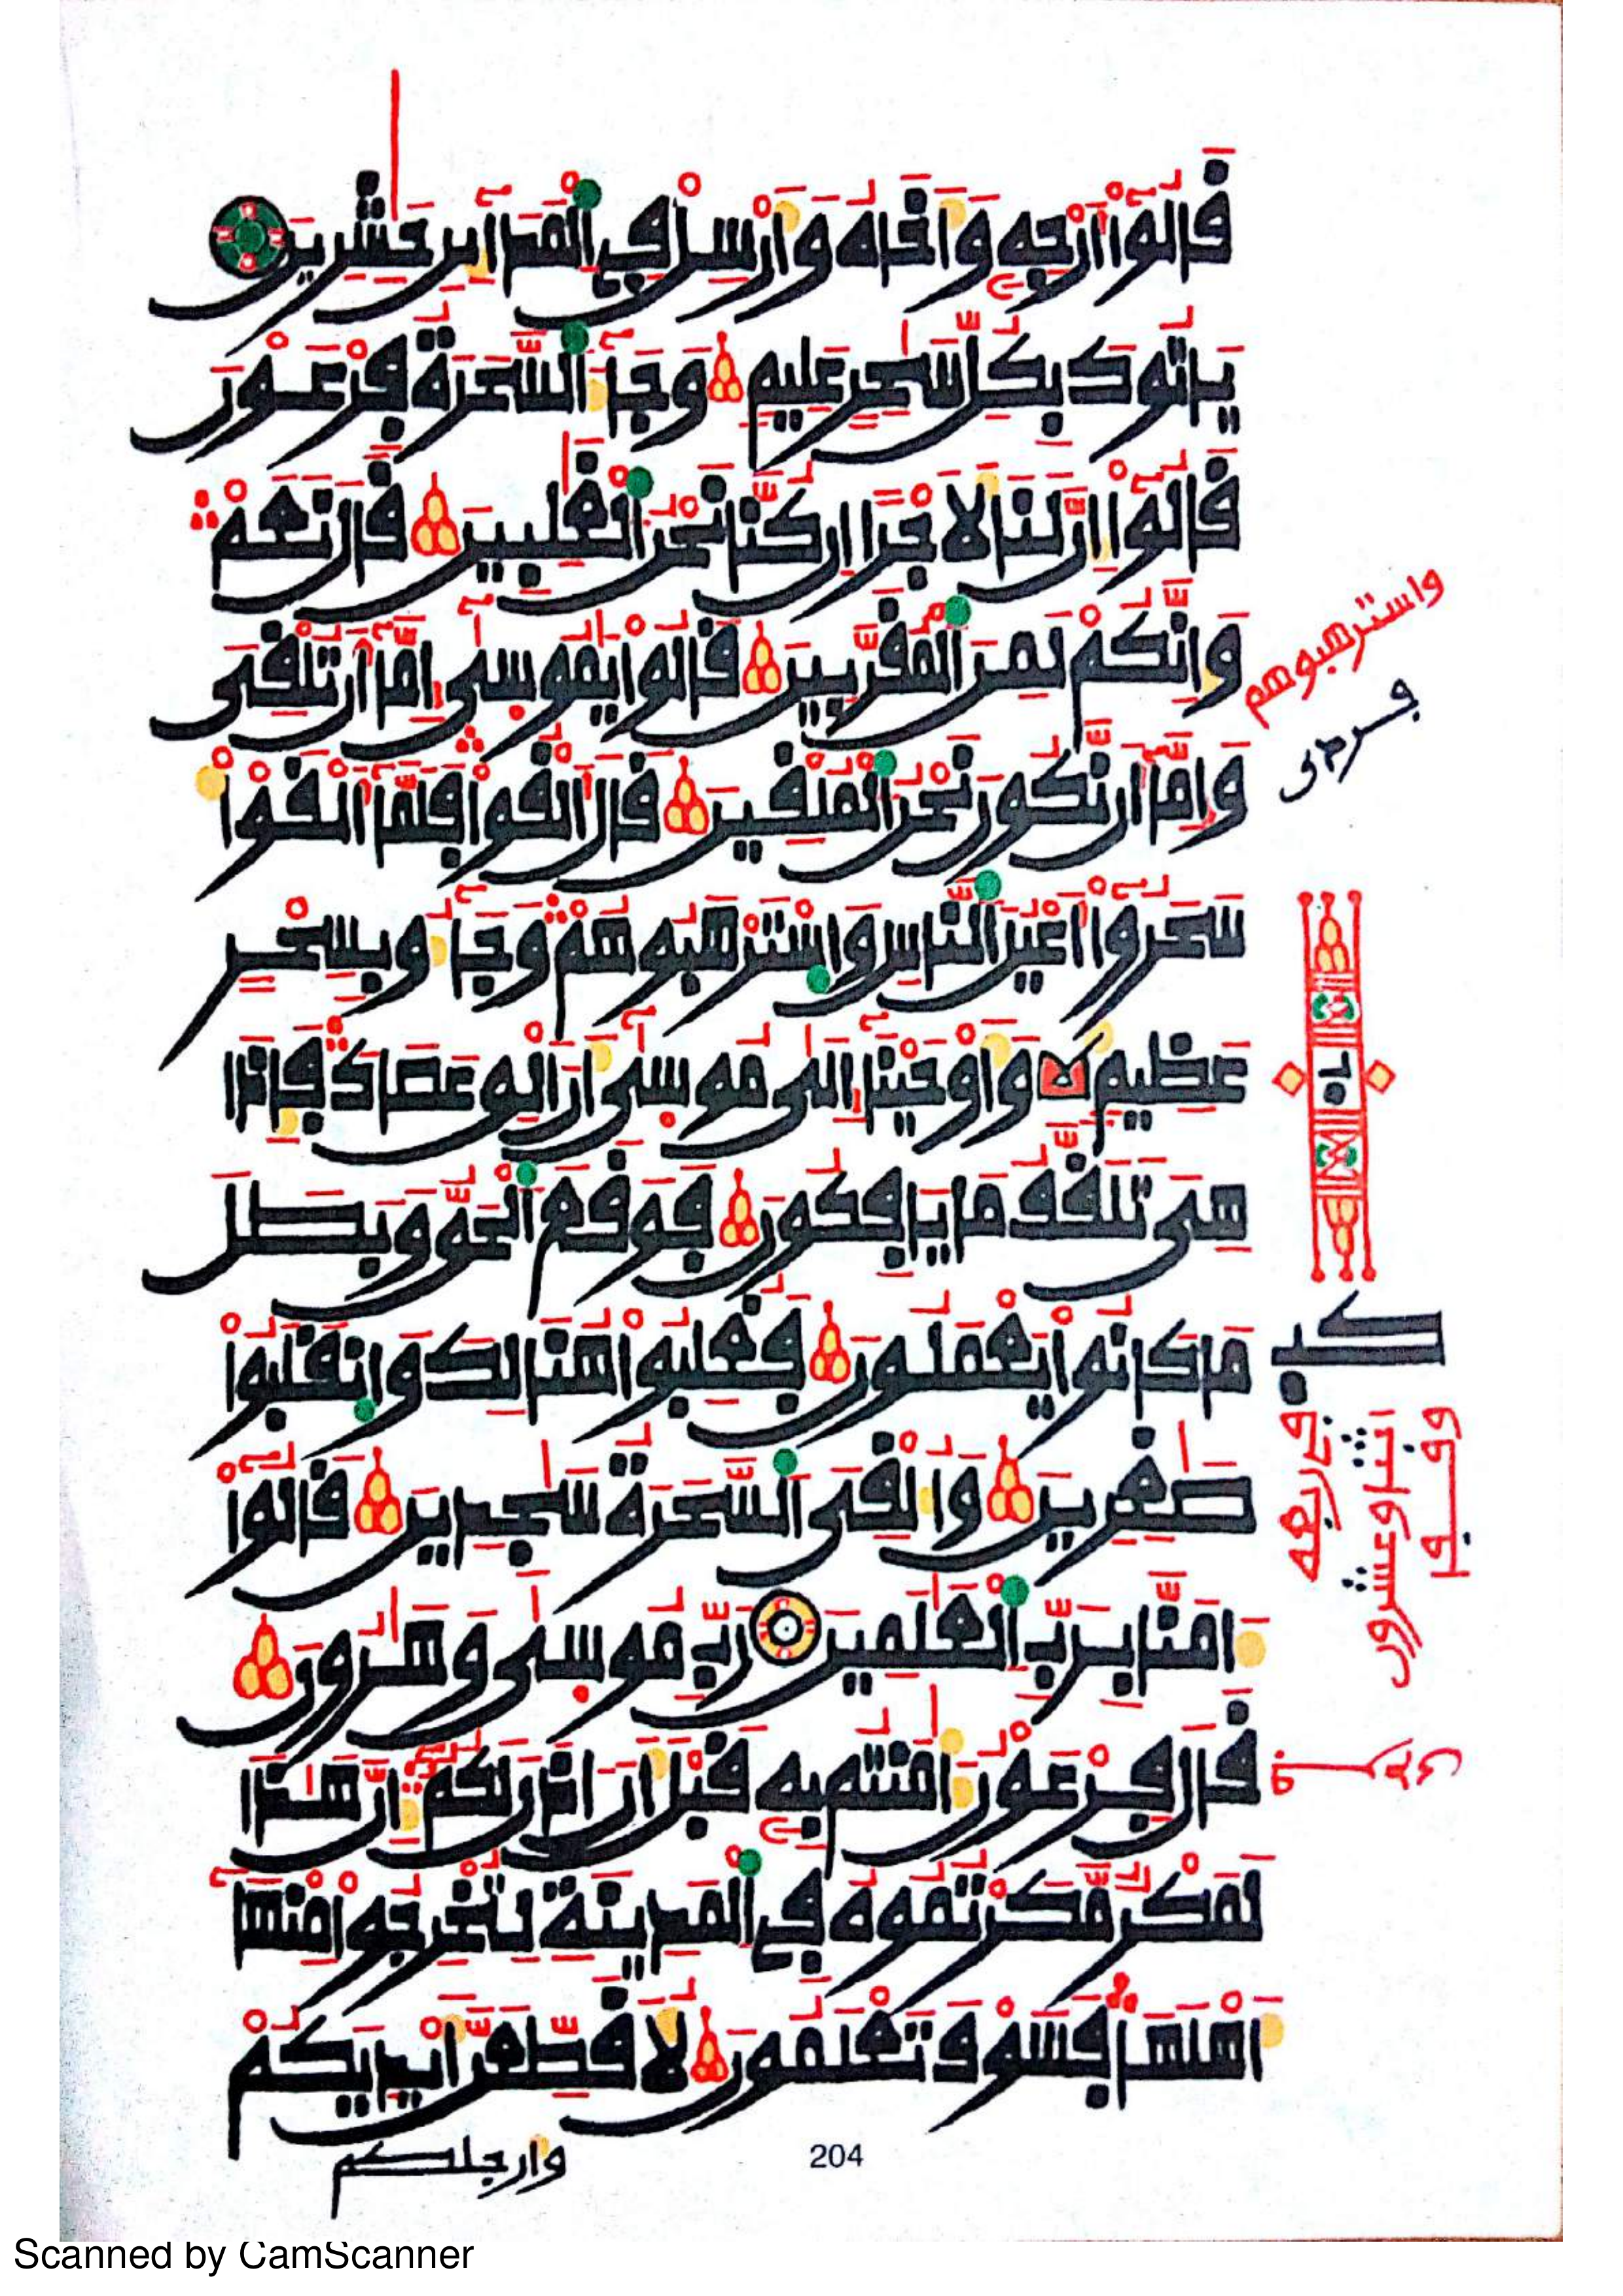 قَالُوٓاْ أَرْجِهِ وَأَخَاهُ وَأَرْسِلْ فِے اِ۬لْمَدَآئِنِ حَٰشِرِينَ
يَاتُوكَ بِكُلِّ سَٰحِرٍ عَلِيمٖ وَجَآءَ اَ۬لسَّحَرَةُ فِرْعَوْنَ
قَالُوٓاْ إِنَّ لَنَا لَأَجْراً إِن كُنَّا نَحْنُ اُ۬لْغَٰلِبِينَ قَالَ نَعَمْ
وَإِنَّكُمْ لَمِنَ اَ۬لْمُقَرَّبِينَ قَالُواْ يَٰمُوسَىٰٓ إِمَّآ أَن تُلْقِيَ
وَإِمَّآ أَن نَّكُونَ نَحْنُ اُ۬لْمُلْقِينَ قَالَ أَلْقُواْ فَلَمَّآ أَلْقَوْاْ
سَحَرُوٓاْ أَعْيُنَ اَ۬لنَّاسِ وَاسْتَرْهَبُوهُمْ وَجَآءُو بِسِحْرٍ
عَظِيمٖ وَأَوْحَيْنَآ إِلَىٰ مُوسَىٰٓ أَنْ أَلْقِ عَصَاكَ فَإِذَا
هِيَ تَلَقَّفُ مَا يَافِكُونَ فَوَقَعَ اَ۬لْحَقُّ وَبَطَلَ
مَا كَانُواْ يَعْمَلُونَ فَغُلِبُواْ هُنَالِكَ وَانقَلَبُواْ
صَٰغِرِينَ وَأُلْقِيَ اَ۬لسَّحَرَةُ سَٰجِدِينَ قَالُوٓاْ
ءَامَنَّا بِرَبِّ اِ۬لْعَٰلَمِينَ رَبِّ مُوسَىٰ وَهَٰرُونَ
قَالَ فِرْعَوْنُ ءَاٰمَنتُم بِهِۦ قَبْلَ أَنْ ءَاذَنَ لَكُمْ إِنَّ هَٰذَا
لَمَكْرٌ مَّكَرْتُمُوهُ فِے اِ۬لْمَدِينَةِ لِتُخْرِجُواْ مِنْهَآ
أَهْلَهَا فَسَوْفَ تَعْلَمُونَ لَأُقَطِّعَنَّ أَيْدِيَكُمْ
وارجلكم
204
واسترهبوهم
Scanned by CamScanner